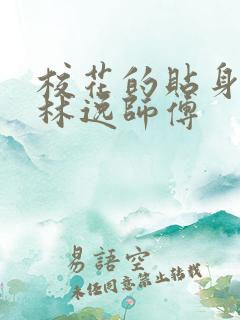 校花的貼身
林逸師傅
易語空
未經同意禁止轉載